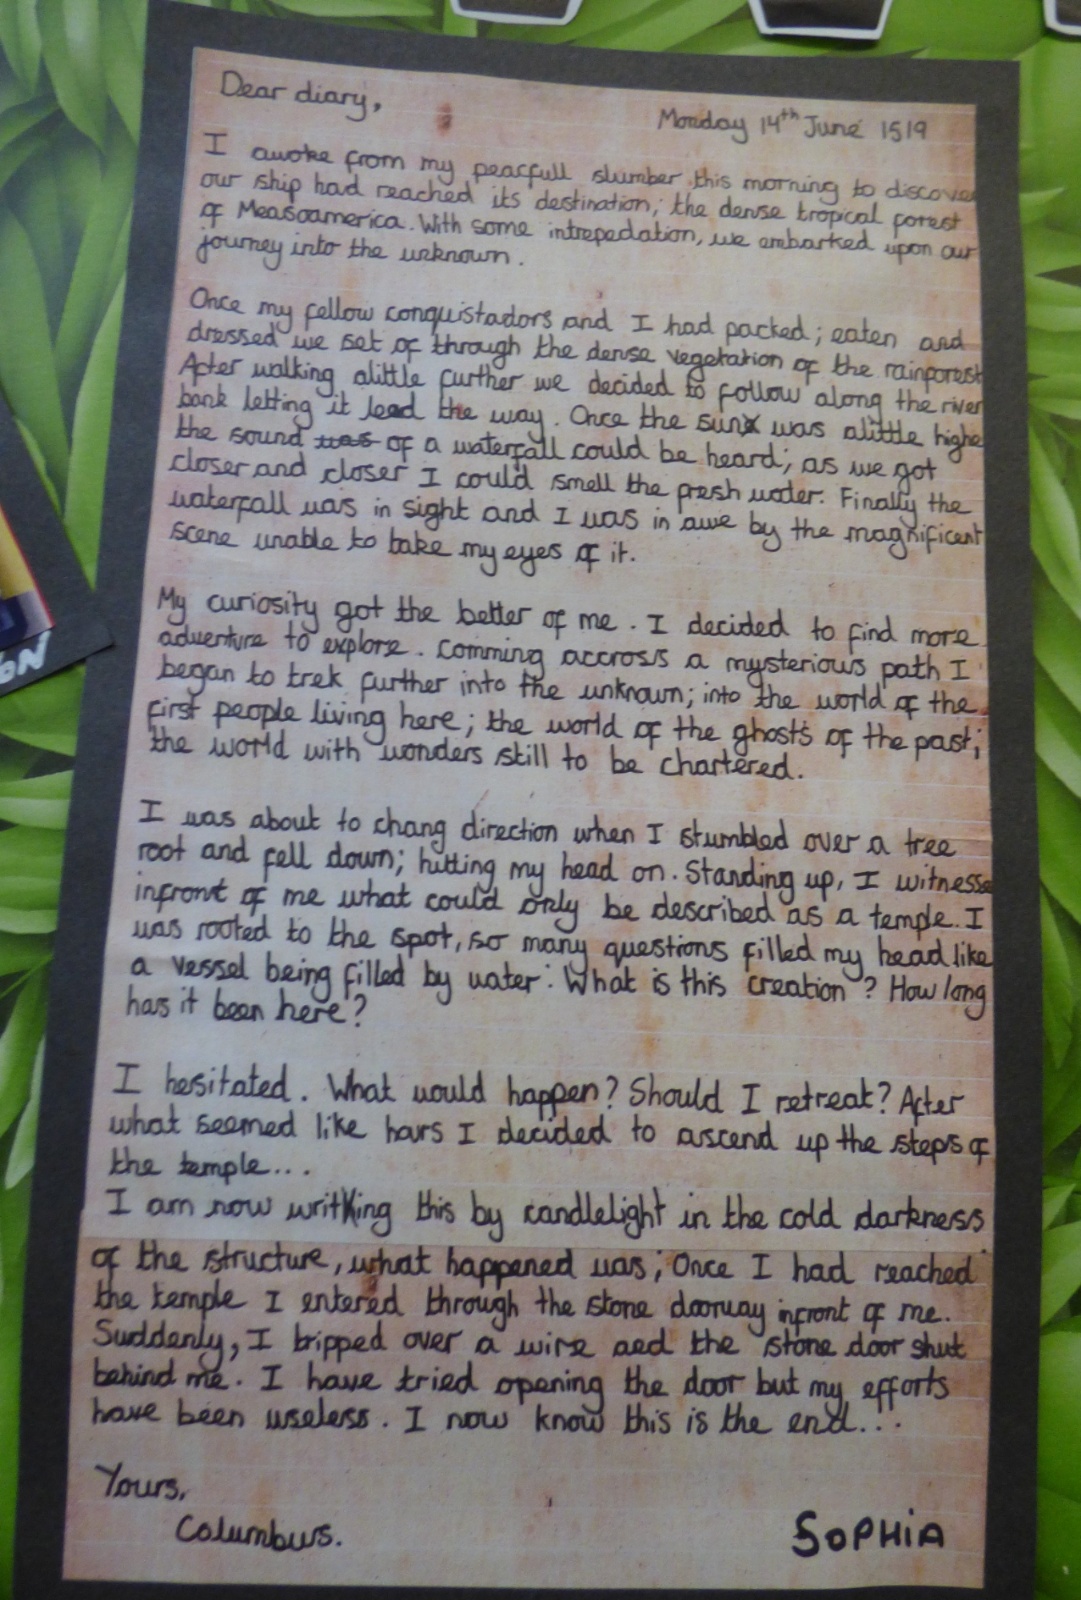 Dear diary,
Monday 14th June 1519
I awoke from my peacfull slumber this morning to discover
our ship had reached its destination; the dense tropical forest
of Measoamerica. With some intrepedation, we embarked upon our
journey into the unknown.
Once my fellow conquistadors and I had packed; eaten and
dressed we set of through the dense vegetation of the rainforest
After walking alittle further we decided to follow along the river
bank letting it lead the way. Once the sun was alittle highe
the sound was of a waterfall could be heard; as we got
closer and closer I could smell the fresh water. Finally the
waterfall was in sight and I was in awe by the magnificent
scene unable to take my eyes of it.
My curiosity got the better of me. I decided to find more
adventure to explore. Comming accross a mysterious path I
began to trek further into the unknown; into the world of the
first people living here; the world of the ghosts of the past;
the world with wonders still to be chartered.
I was about to chang direction when I stumbled over a tree
root and fell down; hitting my head on. Standing up, I witnesse
infront of me what could only be described as a temple. I
was rooted to the spot, so many questions filled my head like
a vessel being filled by water: What is this creation? How long
has it been here?
I hesitated. What would happen? Should I retreat? After
what seemed like hours I decided to ascend up the steps of
the temple...
I am now writing this by candlelight in the cold darkness
of the structure, what happened was; Once I had reached
the temple I entered through the stone doorway infront of me.
Suddenly, I tripped over a wire aed the stone door shut
behind me. I have tried opening the door but my efforts
have been useless. I now know this is the end...
Yours,
Columbus.
SOPHIA
ON